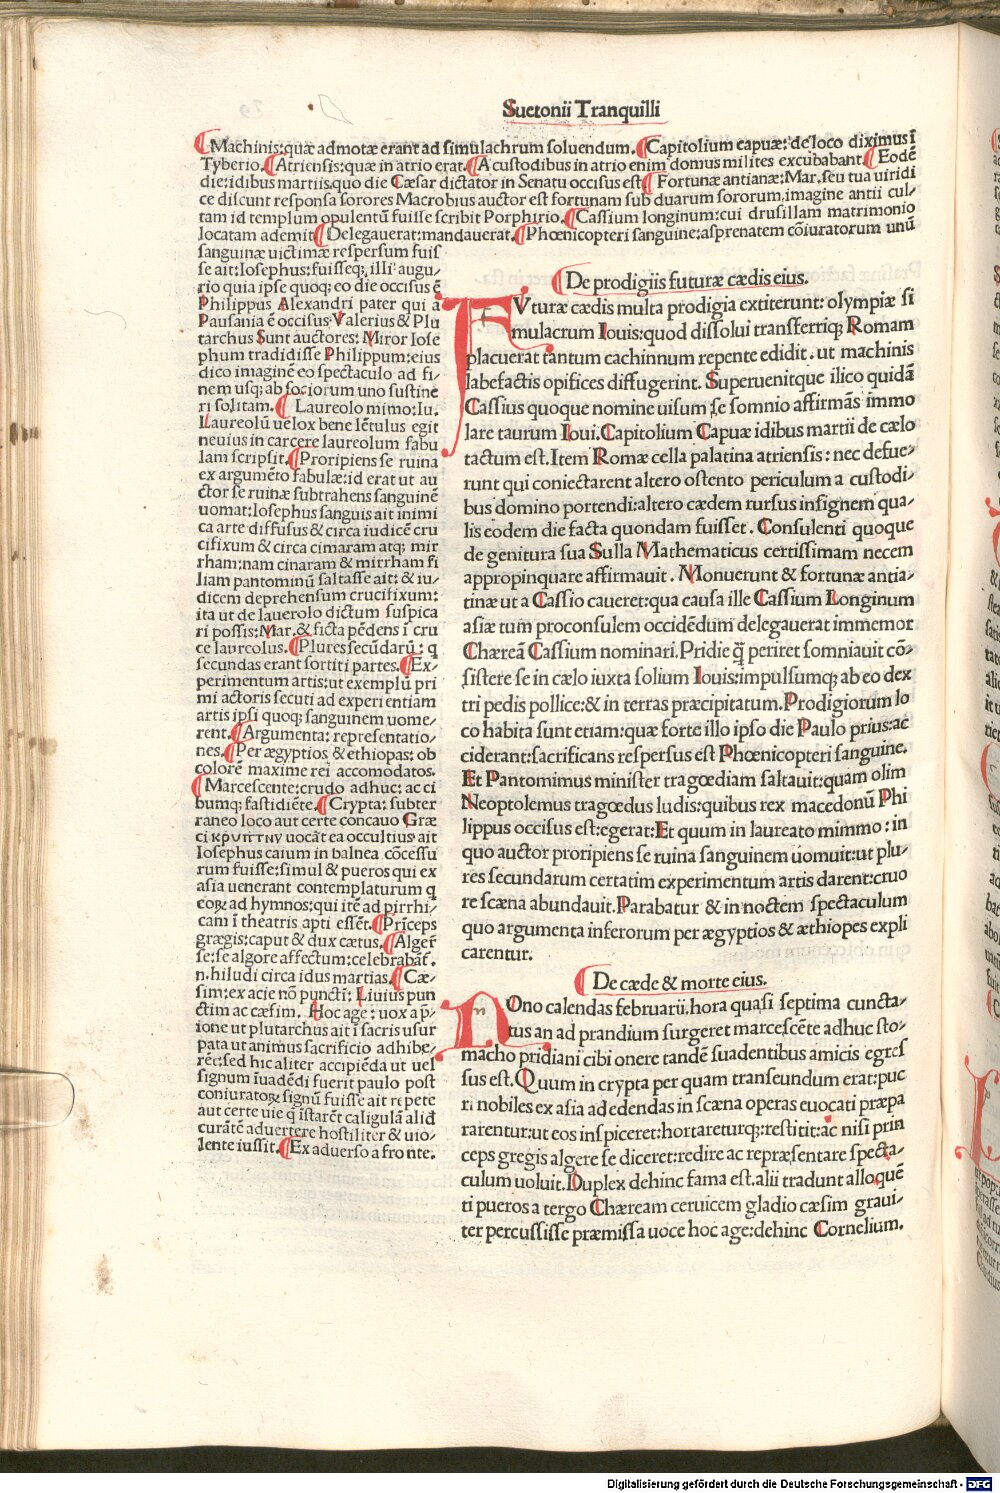 Suetonii Tranquilli
⸿Machinis:quæ admotæ erant ad simulachrum soluendum.⸿Capitolium capuæ:de loco diximus ī
Tyberio.⸿Atriensis:quæ in atrio erat.⸿A custodibus in atrio enim domus milites excubabant⸿Eodē
die:idibus martiis,quo die Cæsar dictator in Senatu occisus est⸿Fortunæ antianæ:Mar.seu tua uiridi
ce discunt responsa sorores Macrobius auctor est fortunam sub duarum sororum,imagine antii cul-
tam id templum opulentū fuisse scribit Porphirio.⸿Cassium longinum:cui drusillam matrimonio
locatam ademit⸿Delegauerat:mandauerat.⸿Phœnicopteri sanguine:asprenatem cōiuratorum unū
sanguinæ uictimæ respersum fuis
se ait:Iosephus:fuisseq; illi augu/
rio quia ipse quoq; eo die occisus ē
Philippus Alexandri pater qui a
Pausania ē occisus Valerius & Plu
tarchus Sunt auctores: Miror Iose
phum tradidisse Philippum:eius
dico imaginē eo spectaculo ad fi/
nem usq; ab sociorum uno sustine
ri solitam.⸿ Laureolo mimo:Iu.
Laureolū uelox bene lētulus egit
neuius in carcere laureolum fabu
lam scripsit.⸿Proripiens se ruina
ex argumēto fabulæ:id erat ut au
ctor se ruinæ subtrahens sanguinē
uomat:Iosephus sanguis ait inimi
ca arte diffusus & circa iudicē cru
cifixum & circa cimaram atq; mir
rham:nam cinaram & mirrham fi
liam pantominū saltasse ait: & iu/
dicem deprehensum crucifixum:
ita ut de lauerolo dictum suspica
ri possis:Mar.& ficta pēdens ī cru
ce laureolus.⸿Plures secūdarū: q
secundas erant sortiti partes.⸿Ex/
perimentum artis:ut exemplū pri
mi actoris secuti ad experientiam
artis ipsi quoq; sanguinem uome/
rent.⸿Argumenta: representatio/
nes.⸿Per ægyptios & ethiopas: ob
colorē maxime rei accomodatos.
⸿Marcescente:crudo adhuc: ac ci
bumq; fastidiēte.⸿Crypta: subter
raneo loco aut certe concauo Græ
ci κρυπτην uocāt ea occultius ait
Iosephus caium in balnea cōcessu
rum fuisse:simul & pueros qui ex
asia uenerant contemplaturum q
eoꝝ ad hymnos:qui itē ad pirrhi/
cam ī theatris apti essēt.⸿Prīceps
grægis:caput & dux cætus.⸿Alger
se:se algore affectum:celebrabāt.
n.hiludi circa idus martias.⸿Cæ/
sim:ex acie nō puncti: Liuius pun
ctim ac cæsim. Hoc age: uox a p̄/
ione ut plutarchus ait ī sacris usur
pata ut animus sacrificio adhibe/
ret:sed hic aliter accipiēda ut uel
signum īuadēdi fuerit paulo post
coniuratoꝝ signū fuisse ait repete
aut certe uie q īstarēt caligulā aliđ
curātē aduertere hostiliter & uio/
lente iussit.⸿Ex aduerso a fronte.
⸿De prodigiis futuræ cædis eius.
FVturæ cædis multa prodigia extiterunt: olympiæ si
mulacrum Iouis:quod dissolui transferriq; Romam
placuerat tantum cachinnum repente edidit. ut machinis
labefactis opifices diffugerint. Superuenitque ilico quidā
Cassius quoque nomine uisum se somnio affirmās immo
lare taurum Ioui.Capitolium Capuæ idibus martii de cælo
tactum est.Item Romæ cella palatina atriensis: nec defue/
runt qui coniectarent altero ostento periculum a custodi/
bus domino portendi:altero cædem rursus insignem qua/
lis eodem die facta quondam fuisset. Consulenti quoque
de genitura sua Sulla Mathematicus certissimam necem
appropinquare affirmauit. Monuerunt & fortunæ antia/
tinæ ut a Cassio caueret:qua causa ille Cassium Longinum
asiæ tum proconsulem occidēdum delegauerat immemor
Chæreā Cassium nominari.Pridie q̄ periret somniauit cō/
sistere se in cælo iuxta solium Iouis:impulsumq; ab eo dex
tri pedis pollice:& in terras præcipitatum.Prodigiorum lo
co habita sunt etiam:quæ forte illo ipso die Paulo prius:ac
ciderant:sacrificans respersus est Phœnicopteri sanguine.
Et Pantomimus minister tragœdiam saltauit:quam olim
Neoptolemus tragœdus ludis:quibus rex macedonū Phi
lippus occisus est:egerat:Et quum in laureato mimmo: in
quo auctor proripiens se ruina sanguinem uomuit:ut plu/
res secundarum certatim experimentum artis darent:cruo
re scæna abundauit.Parabatur & in noctem spectaculum
quo argumenta inferorum per ægyptios & æthiopes expli
carentur.
⸿De cæde & morte eius.
NOno calendas februarii,hora quasi septima cuncta/
tus an ad prandium surgeret marcescēte adhuc sto/
macho pridiani cibi onere tandē suadentibus amicis egres
sus est.Quum in crypta per quam transeundum erat:puc
ri nobiles ex asia ad edendas in scæna operas euocati præpa
rarentur:ut eos inspiceret:hortareturq;:restitit:ac nisi prin
ceps gregis algere se diceret:redire ac repræsentare specta/
culum uoluit.Duplex dehinc fama est.alii tradunt alloquē
ti pueros a tergo Chæream ceruicem gladio cæsim graui/
ter percussisse præmissa uoce hoc age:dehinc Cornelium.
Digitalisierung gefördert durch die Deutsche Forschungsgemeinschaft - DFG